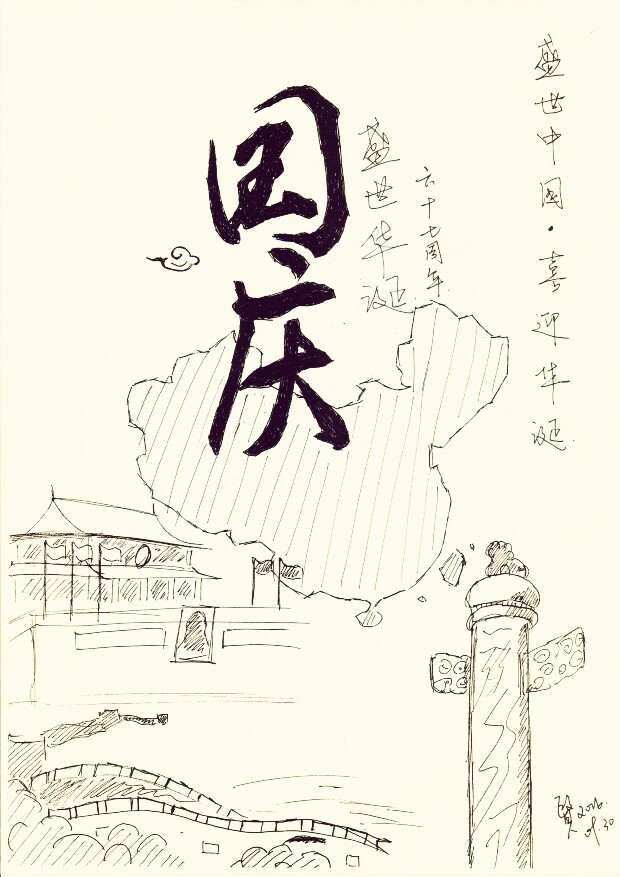 国庆
盛世华诞
六十七周年
盛世中国·喜迎华诞
2016.
09.30